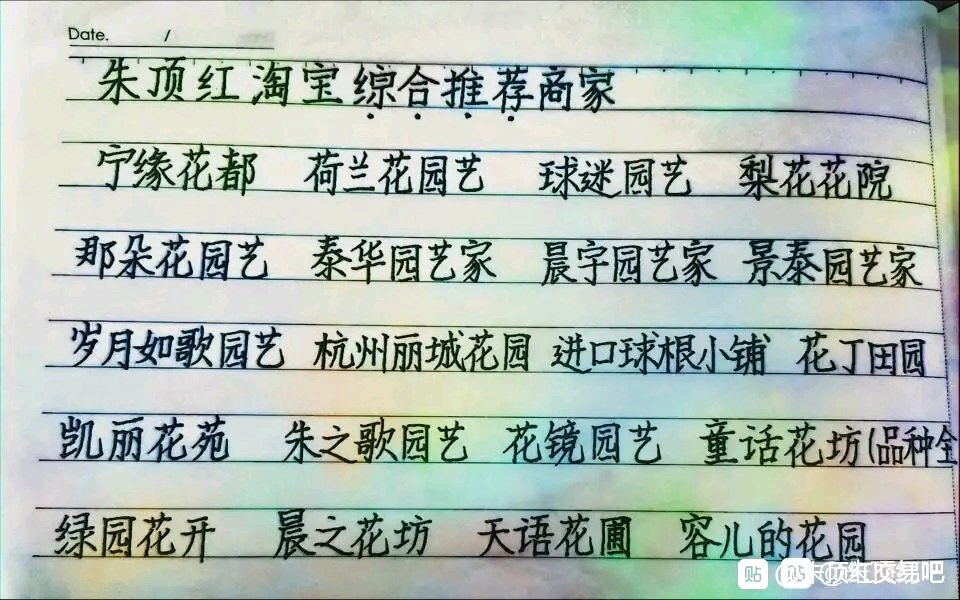 Date. /
朱顶红淘宝综合推荐商家
宁缘花都 荷兰花园艺 球迷园艺 梨花花院
那朵花园艺 泰华园艺家 晨宇园艺家 景泰园艺家
岁月如歌园艺 杭州丽城花园 进口球根小铺 花丁田园
凯丽花苑 朱之歌园艺 花镜园艺 童话花坊(品种全
绿园花开 晨之花坊 天语花圃 容儿的花园
贴 贴 朱顶红交易吧